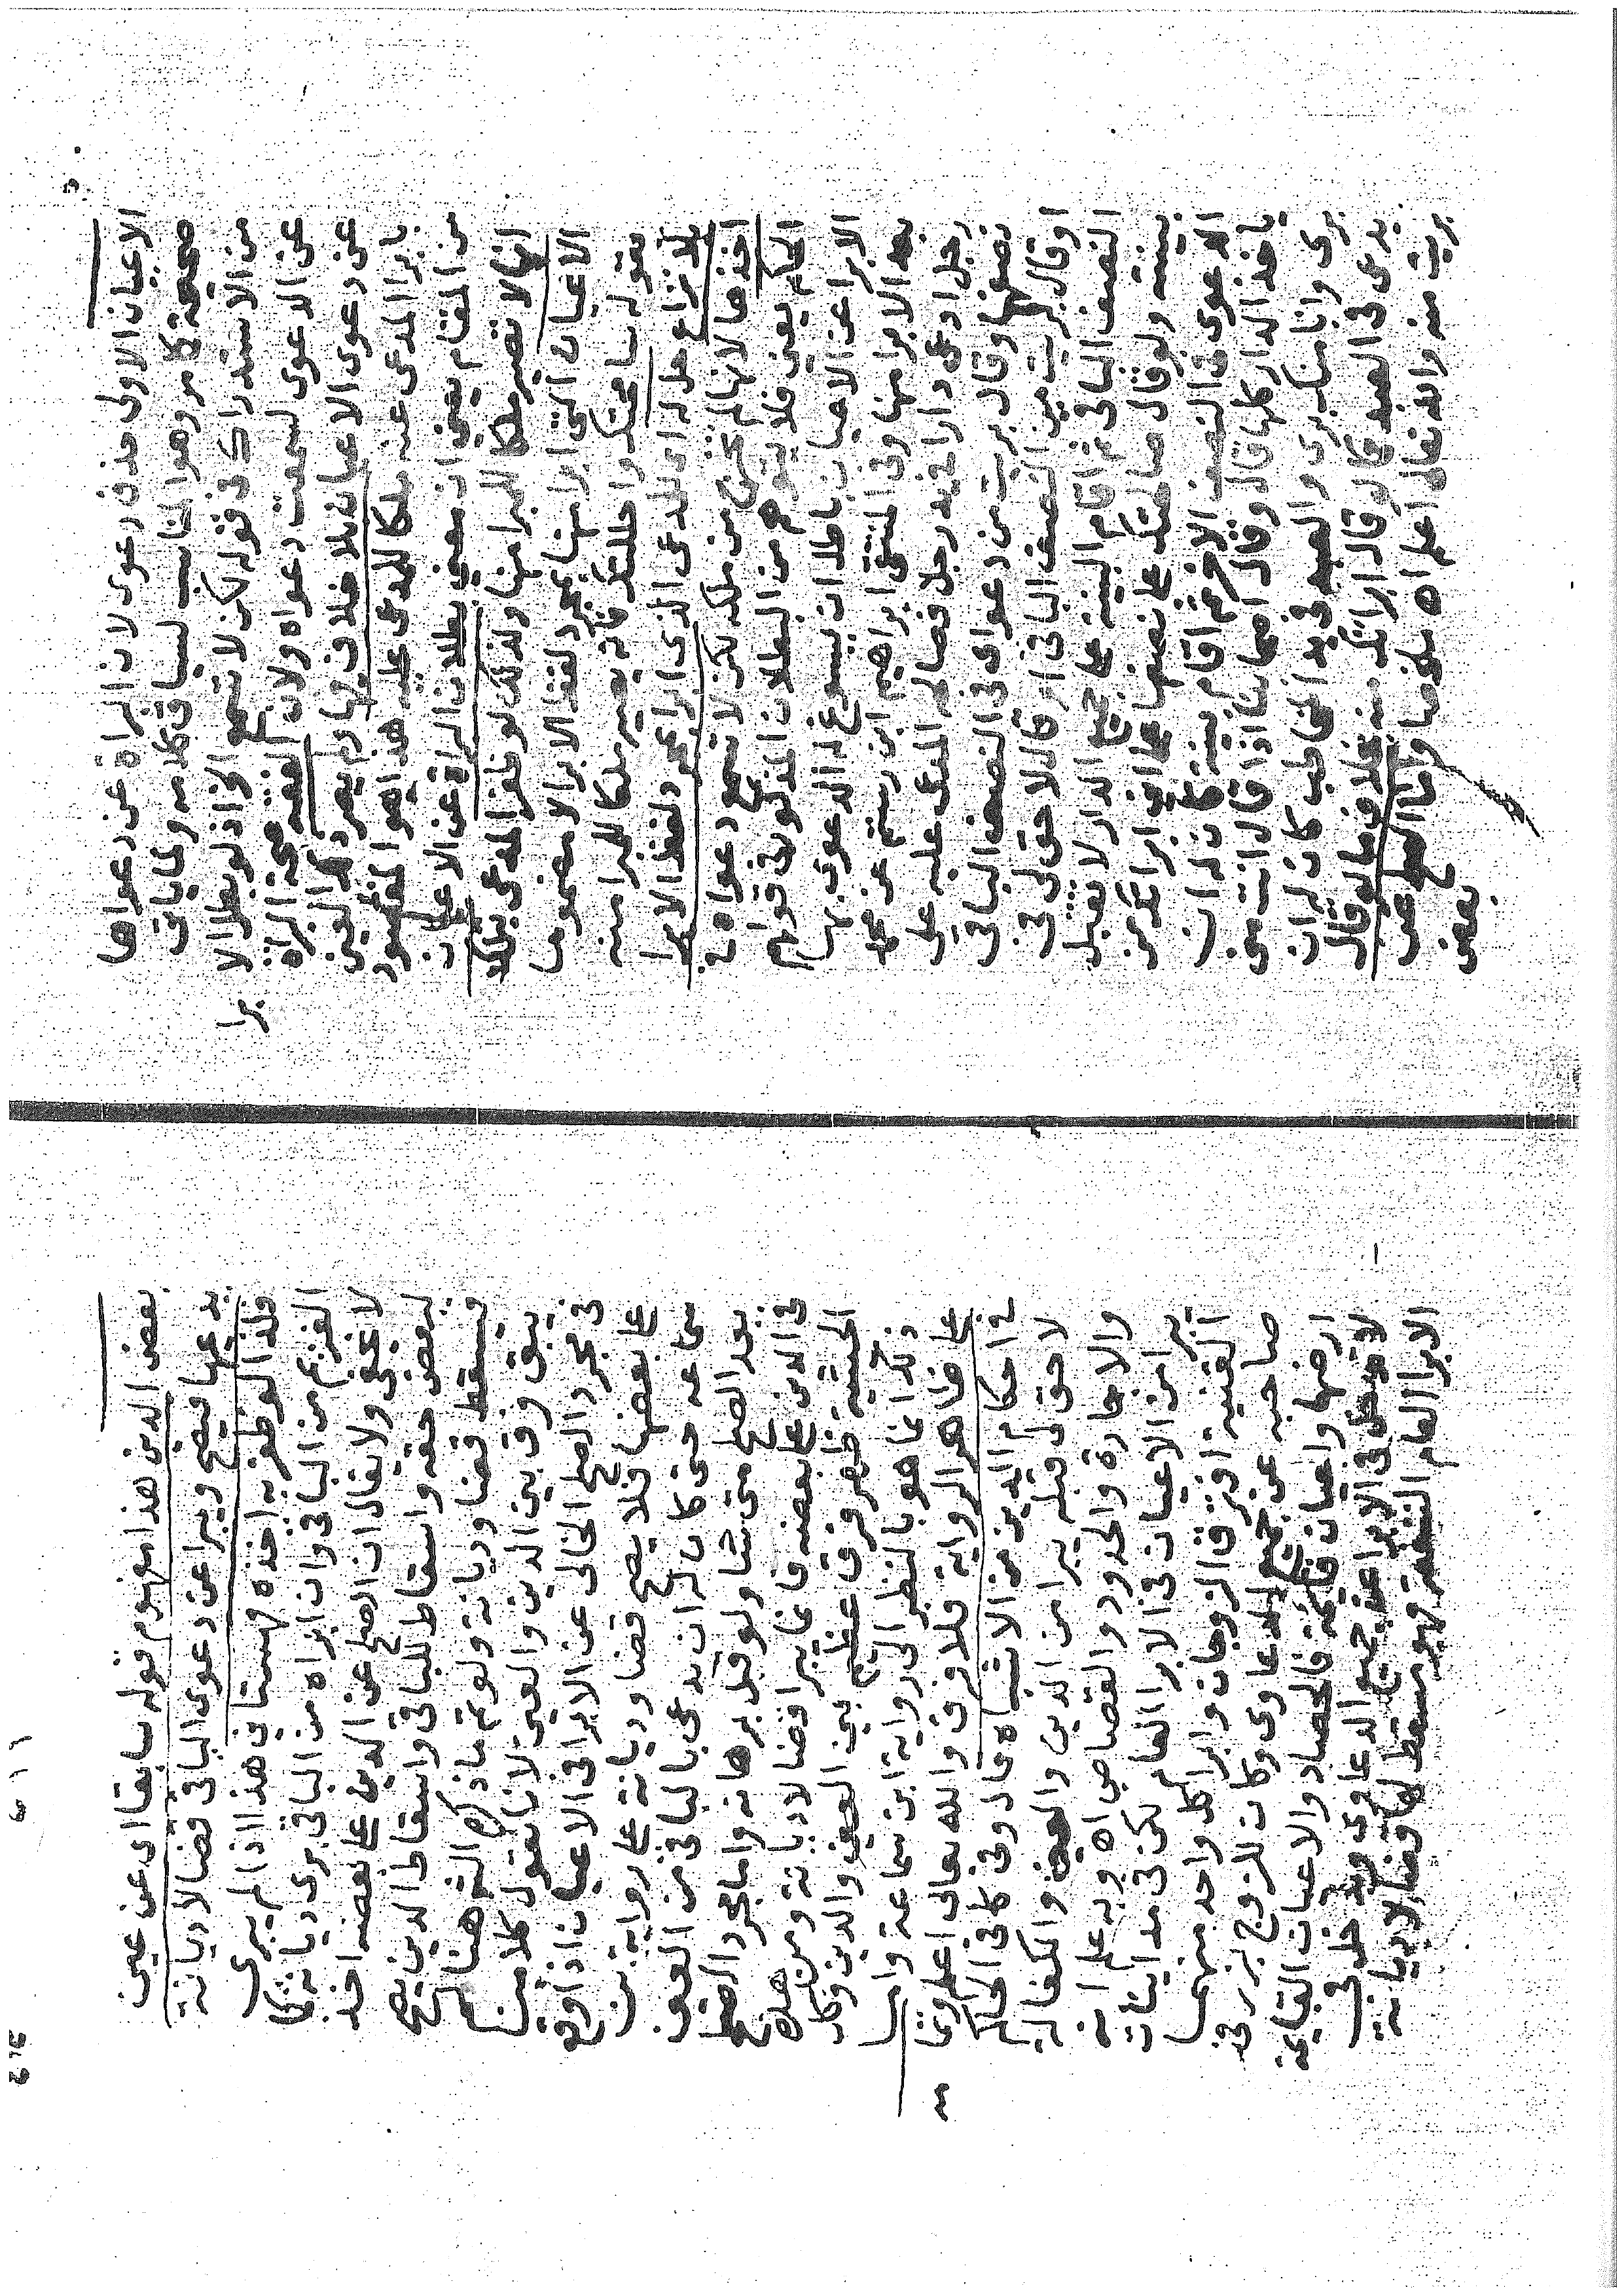 الاعيان الاولى حذف دعوى لان البراة عن دعواها
صحيحة كما مر وهو المناسب لسياق كلامه ولما ياتى
من الاستدراك فى قوله لكن لا تسمع الخ اذ لو بطل الابرا
عن الدعوى لسمعت دعواه ولان لفقه صحة البراة
عن دعوى الاعيان بلا خلاف بها ولم يصر ذلك العين
بابرا المدعى عنه ملكا للمدعى عليه هذا هو المقصود
من المقام يعنى ان معنى بطلان البراة عن الاعيان
انها لا تصير ملكا للمبرا منها ولذلك لو ظفر المدعى بتلك
الاعيان التى ابرا منها بمجرد لفظ الابرا لا مضموما
بقوله سامحتك واحللتك فانه يصير ملكا للمبرا منه
بلا نزاع حل له اى للمدعى الذى ابرا بمجرد لفظ الابرا
اخذها لانها لم تخرج من ملكه لكن لا تسمع دعواه فى
الحكم يعنى فلا يتوهم من البطلان المذكور فى قولهم
الابرا عن الاعيان باطل ان يسوغ له الدعوى بها
بعد الابرا منها وفى المنتقى ابراهيم ابن رستم عن محمد
رجل ادعى دارا فى يد رجل فصالحه المدعى عليه على
نصفها وقال برئت من دعواى فى النصف الباقى
او قال برئت من النصف الباقى او قال لا حق لى فى
النصف الباقى ثم اقام البينة على جميع الدار لا تقبل
بينته ولو قال صالحتك على نصفها على انى ابراتك من
الدعوى فى النصف الاخر ثم اقام بينة كان له ان
ياخذ الدار كلها قال وقال اصحابنا اذا قال انت من
برى وانا منك برى والعبد فى يد المخاطب كان له ان
يدعى فى العبد كما لو قال ابراتك منه بخلاف ما لو قال
برئت منه والله تعالى اعلم اه بلوصا واما الصلح على
بعض
بعض الدين هذا مفهوم قوله سابقا اى عن عين
يدعيها فيصح ويبرا عن دعوى الباقى قضا لا ديانة
فلذا لو ظفر به اخذه قهستانى هذا اذا لم يبرى
الغريم من الباقى وان ابراه من الباقى برى ديانة كما
لا يخفى ولا يقال ان الصلح عن الدين على بعضه اخذ
لبعض حقه واسقاط للباقى واسقاط الدين يصح
فيسقط قضا وديانة ولو تم ما ذكره اثم هنا لم
يبق فرق بين الدين والعين لانا نقول كلامنا
فى مجرد الصلح الخالى عن الابرا فى الاعيان اذا وقع
على بعضها فلا يصح قضا وديانة على رواية ابن
سماعه حتى كان له ان يدعى بالباقى من العين
بعد الصلح متى شا ولو قبل برهانه واما مجرد الصلح
فى الدين على بعضه فانما يبرا قضا لا ديانة ومن هذه
الحيثية ظهر فرق عظيم بين العين والدين وكل
ذلك انما هو بالنظر الى رواية ابن سماعة واما
على ظاهر الرواية فلا فرق والله تعالى اعلم وتما
فى احكام الدين من الاشباه قال وفى كافى الحاكم
لا حق لى قبله يبرا من الدين والعين والكفالة
والاجارة والحدود والقصاص اه وبه علم انه
يبرا من الاعيان فى الابرا العام لكن فى مداينات
القنية افترق الزوجان وابرا كل واحد منهما
صاحبه عن جميع الدعاوى وكان للزوج بزر فى
ارضها واعيان قائمة فالحصاد والاعيان القائمة
لا تدخل فى الابرا عن جميع الدعاوى ويدخل فى
الابرا العام الشفعة فهو مسقط لها قضا لا ديانة